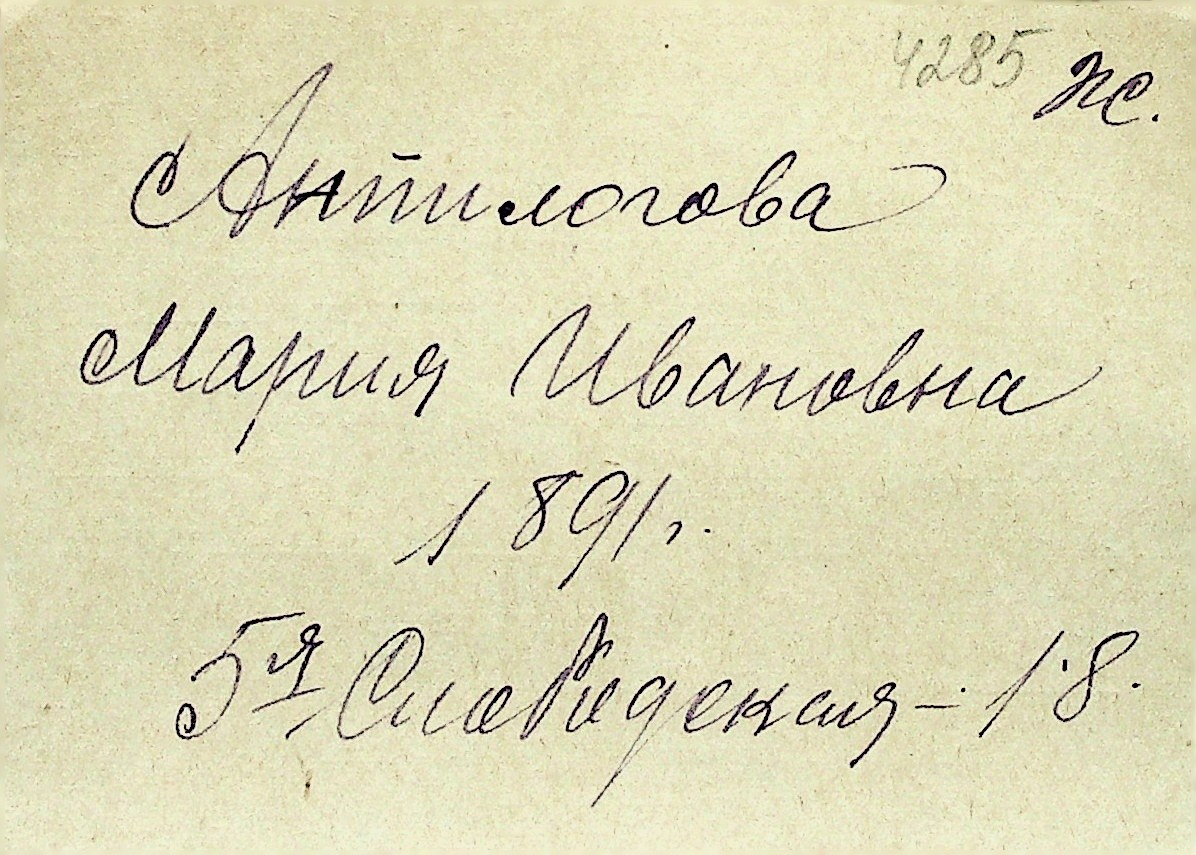 4285 Ж.
Антилогова
Мария Ивановна
1891г.
5я Слободская - 18.